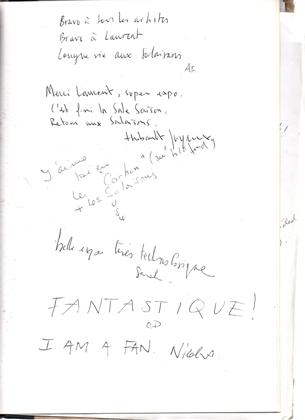 Bravo à tous les artistes
Bravo à Laurent
Longue vie aux Salaisons
Merci Laurent, super expo.
C'est fini la Sale Saison.
Retour aux Salaisons.
Thibault
J'aime
le "Carbon"
+ les Salaisons
belle expo très technologique
Sarah.
FANTASTIQUE!
I AM A FAN. Nicolas.